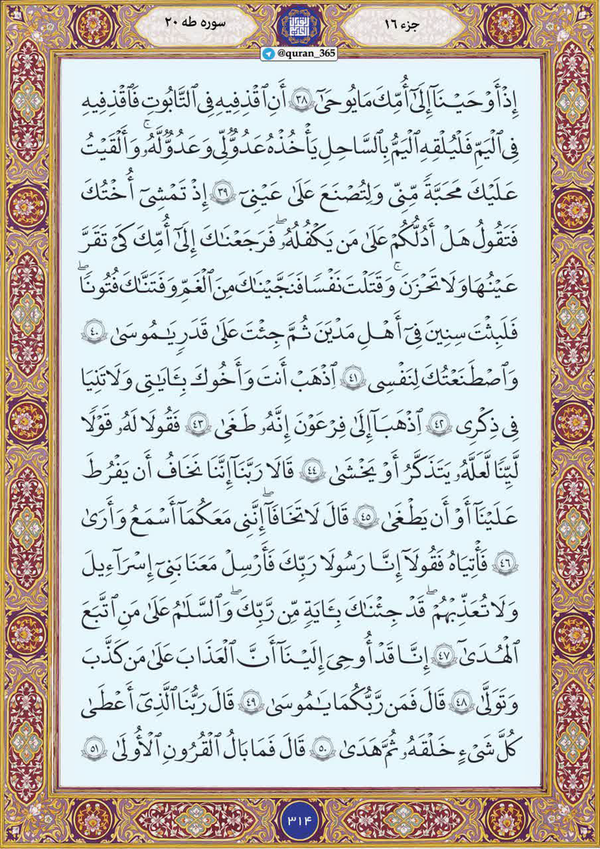 جزء ۱۶
سوره طه ۲۰
@quran_365
إِذۡ أَوۡحَيۡنَآ إِلَىٰٓ أُمِّكَ مَا يُوحَىٰٓ ۳۸ أَنِ ٱقۡذِفِيهِ فِي ٱلتَّابُوتِ فَٱقۡذِفِيهِ
فِي ٱلۡيَمِّ فَلۡيُلۡقِهِ ٱلۡيَمُّ بِٱلسَّاحِلِ يَأۡخُذۡهُ عَدُوّٞ لِّي وَعَدُوّٞ لَّهُۥۚ وَأَلۡقَيۡتُ
عَلَيۡكَ مَحَبَّةٗ مِّنِّي وَلِتُصۡنَعَ عَلَىٰ عَيۡنِيٓ ۳۹ إِذۡ تَمۡشِيٓ أُخۡتُكَ
فَتَقُولُ هَلۡ أَدُلُّكُمۡ عَلَىٰ مَن يَكۡفُلُهُۥۖ فَرَجَعۡنَٰكَ إِلَىٰٓ أُمِّكَ كَيۡ تَقَرَّ
عَيۡنُهَا وَلَا تَحۡزَنَۚ وَقَتَلۡتَ نَفۡسٗا فَنَجَّيۡنَٰكَ مِنَ ٱلۡغَمِّ وَفَتَنَّٰكَ فُتُونٗاۖ
فَلَبِثۡتَ سِنِينَ فِيٓ أَهۡلِ مَدۡيَنَ ثُمَّ جِئۡتَ عَلَىٰ قَدَرٖ يَٰمُوسَىٰ ۴۰
وَٱصۡطَنَعۡتُكَ لِنَفۡسِي ۴۱ ٱذۡهَبۡ أَنتَ وَأَخُوكَ بِـَٔايَٰتِي وَلَا تَنِيَا
فِي ذِكۡرِي ۴۲ ٱذۡهَبَآ إِلَىٰ فِرۡعَوۡنَ إِنَّهُۥ طَغَىٰ ۴۳ فَقُولَا لَهُۥ قَوۡلٗا
لَّيِّنٗا لَّعَلَّهُۥ يَتَذَكَّرُ أَوۡ يَخۡشَىٰ ۴۴ قَالَا رَبَّنَآ إِنَّنَا نَخَافُ أَن يَفۡرُطَ
عَلَيۡنَآ أَوۡ أَن يَطۡغَىٰ ۴۵ قَالَ لَا تَخَافَآۖ إِنَّنِي مَعَكُمَآ أَسۡمَعُ وَأَرَىٰ
۴۶ فَأۡتِيَاهُ فَقُولَآ إِنَّا رَسُولَا رَبِّكَ فَأَرۡسِلۡ مَعَنَا بَنِيٓ إِسۡرَٰٓءِيلَ
وَلَا تُعَذِّبۡهُمۡۖ قَدۡ جِئۡنَٰكَ بِـَٔايَةٖ مِّن رَّبِّكَۖ وَٱلسَّلَٰمُ عَلَىٰ مَنِ ٱتَّبَعَ
ٱلۡهُدَىٰٓ ۴۷ إِنَّا قَدۡ أُوحِيَ إِلَيۡنَآ أَنَّ ٱلۡعَذَابَ عَلَىٰ مَن كَذَّبَ
وَتَوَلَّىٰ ۴۸ قَالَ فَمَن رَّبُّكُمَا يَٰمُوسَىٰ ۴۹ قَالَ رَبُّنَا ٱلَّذِيٓ أَعۡطَىٰ
كُلَّ شَيۡءٍ خَلۡقَهُۥ ثُمَّ هَدَىٰ ۵۰ قَالَ فَمَا بَالُ ٱلۡقُرُونِ ٱلۡأُولَىٰ ۵۱
۳۱۴